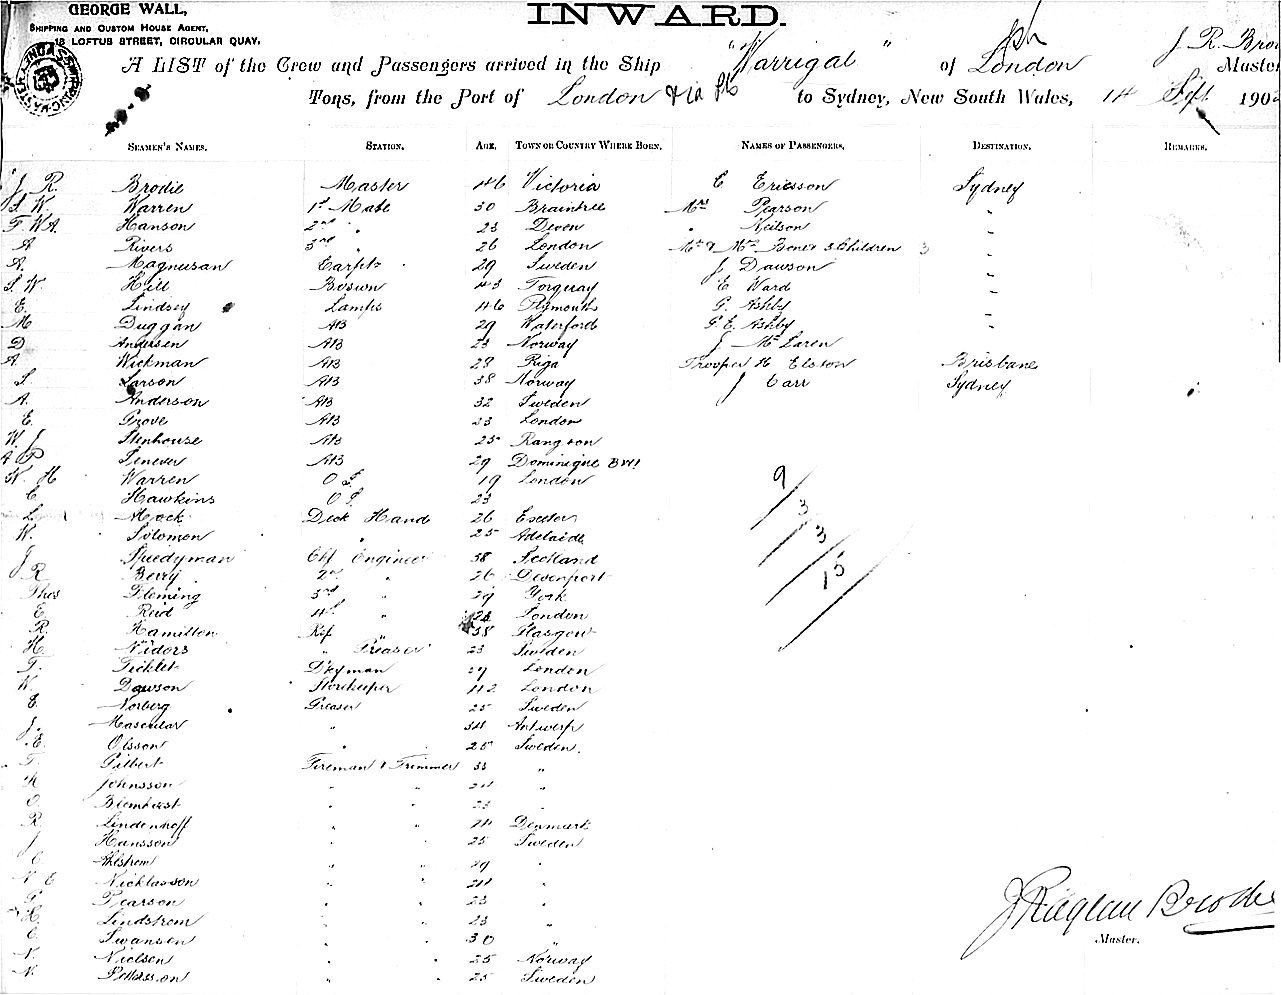 GEORGE WALL,
SHIPPING AND CUSTOM HOUSE AGENT,
18 LOFTUS STREET, CIRCULAR QUAY.
INWARD.
A LIST of the Crew and Passengers arrived in the Ship "Warrigal" of London J. R. Brodie Master
Tons, from the Port of London via to Sydney, New South Wales, 14 Sept 190
SEAMEN'S NAMES. STATION. AGE. TOWN OR COUNTRY WHERE BORN. NAMES OF PASSENGERS. DESTINATION. REMARKS.
J R. Brodie Master 46 Victoria C Ericsson Sydney
W. Warren 1st Mate 30 Braintree Mrs Pearson "
F W A. Hanson 2nd " 23 Devon " Neilson "
A Rivers 3rd " 26 London Mr & Mrs Bones 3 Children 3 "
A. Magnusan Carptr 29 Sweden J Dawson "
S W Hill Boswn 43 Torquay E Ward "
E. Lindsey Lamps 46 Plymouth G. Ashby "
M Duggan AB 29 Waterford G. E. Ashby "
D Andersen AB 23 Norway J McLaren
A. Wickman AB 28 Riga Trooper H Elston Brisbane
S. Larson AB 38 Norway J Carr Sydney
A. Anderson AB 32 Sweden
E. Grove AB 23 London
W. J Stenhouse AB 25 Rangoon
A P Tenever AB 29 Dominique BWI
W. H Warren O S 19 London
C Hawkins O S. 23
L Mock Deck Hand 26 Exeter
W. Solomon " 25 Adelaide
J Speedyman Chf Engineer 38 Scotland
J R Berry 2nd " 26 Devonport
Thos Fleming 3rd " 29 York
E Reid 4th " London
R. Hamilton Ref " 38 Glasgow
H. Nidors " Greaser 23 Sweden
T. Tricklet D'kyman 39 London
W. Dawson Storekeeper 42 London
E. Norberg Greaser 25 Sweden
J. Mascular " 34 Antwerp
E. Olsson " 25 Sweden.
T. Gilbert Fireman & Trimmer 33 "
K Johnsson " " 24 "
O. Blomkvist " " 23 "
R Lindenhoff " " 24 Denmark
J Hansson " " 25 Sweden
C Ahlstrom " " 29 "
N E Nicklasson " " 24 "
G Pearson " " 23 "
H. Lindstrom " " 23 "
C Swansen " " 30 "
N. Nielsen " " 25 Norway
N. Petterson " " 25 Sweden
9
3
3
15
J Raglan Brodie
Master.